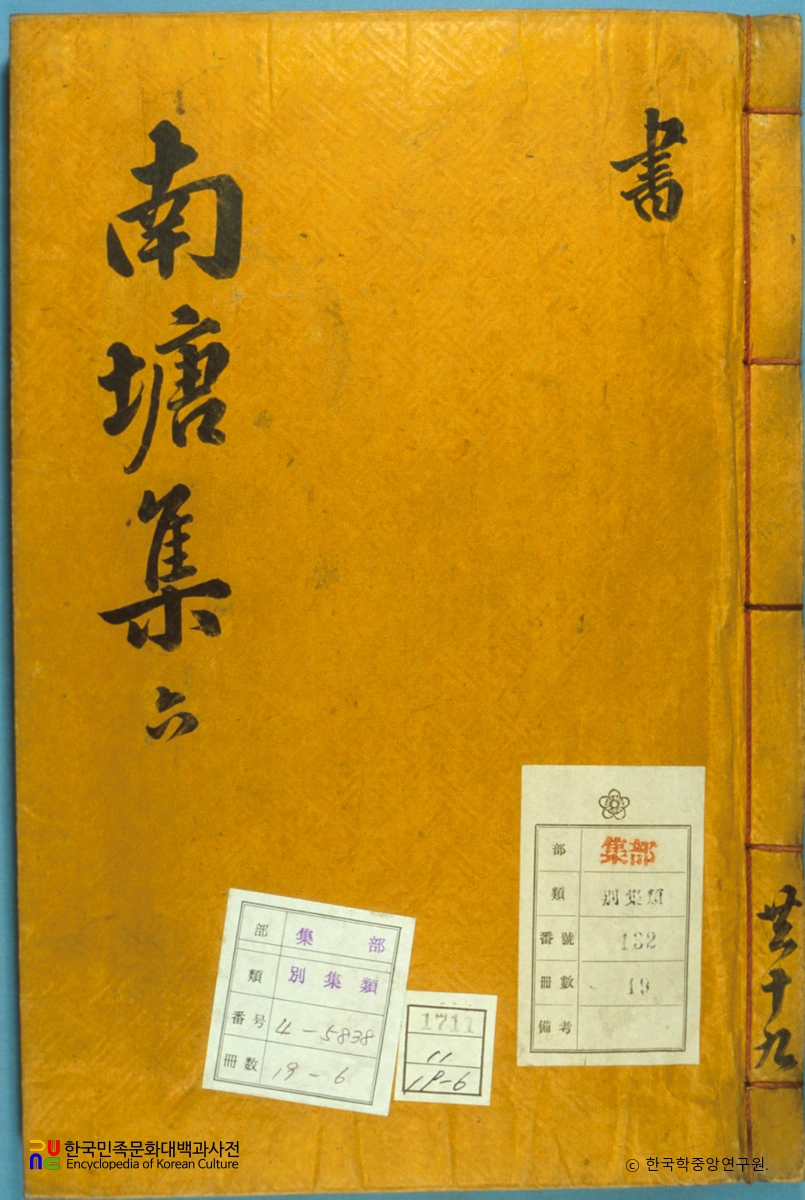 書
南塘集 六
共十九
部 集部
類 別集類
番號 132
冊數 19
備考
部 集部
類 別集類
番号 4-5838
冊数 19-6
1711
11
19-6
한국민족문화대백과사전
Encyclopedia of Korean Culture
ⓒ 한국학중앙연구원.